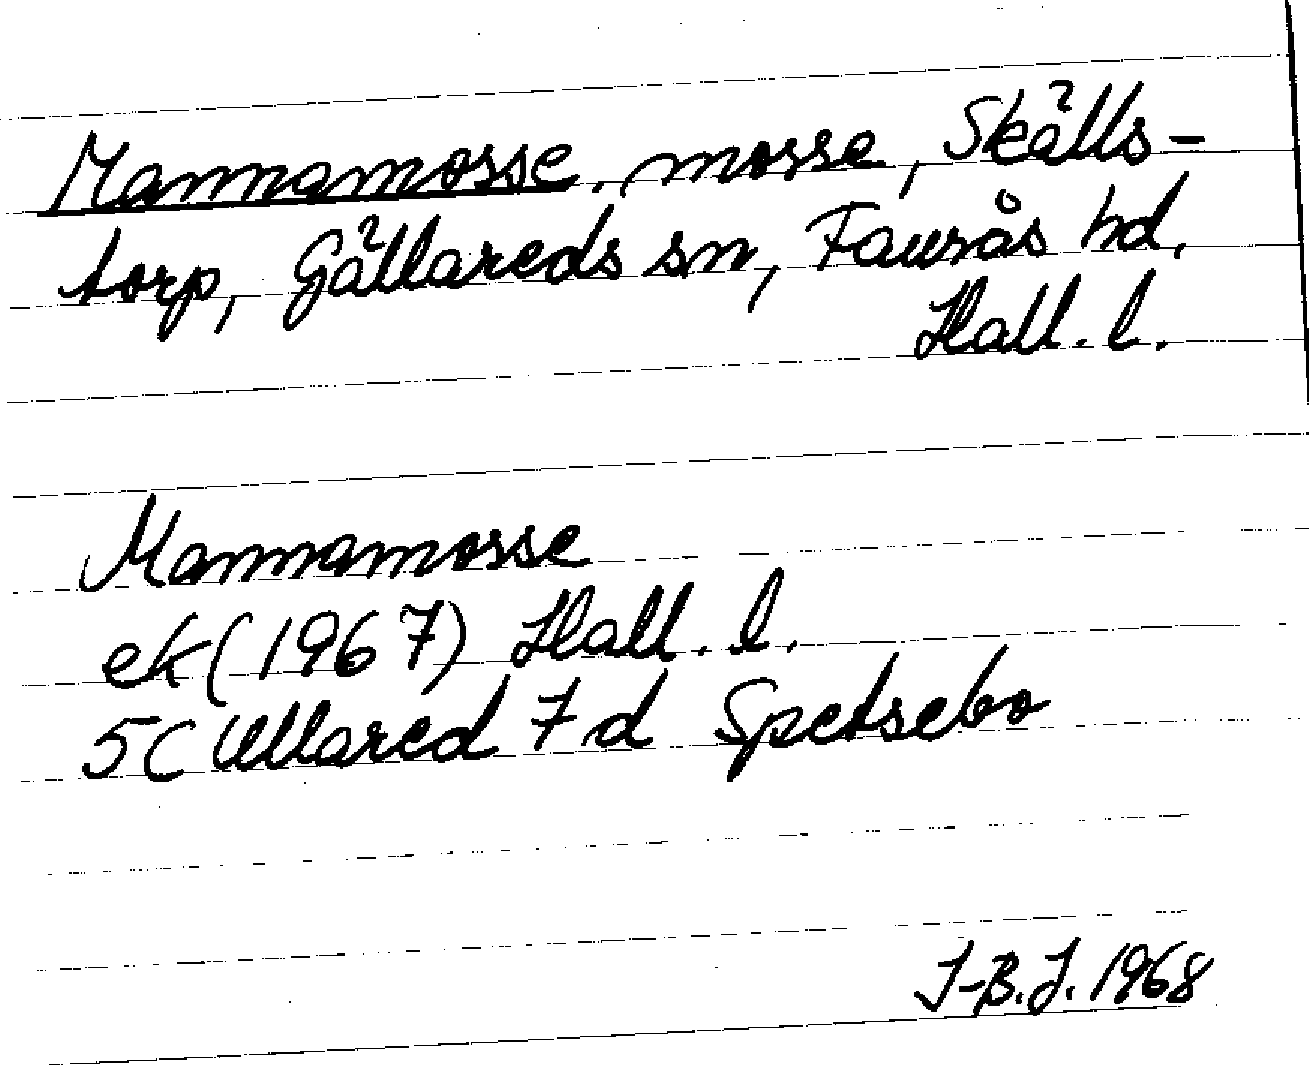 Mannamosse, mosse, Skälls-
torp, Gällareds sn, Faurås hd,
Hall. l.
Mannamosse
ek (1967) Hall. l.
5C Ullared 7d Spetsebo
J-B.J. 1968